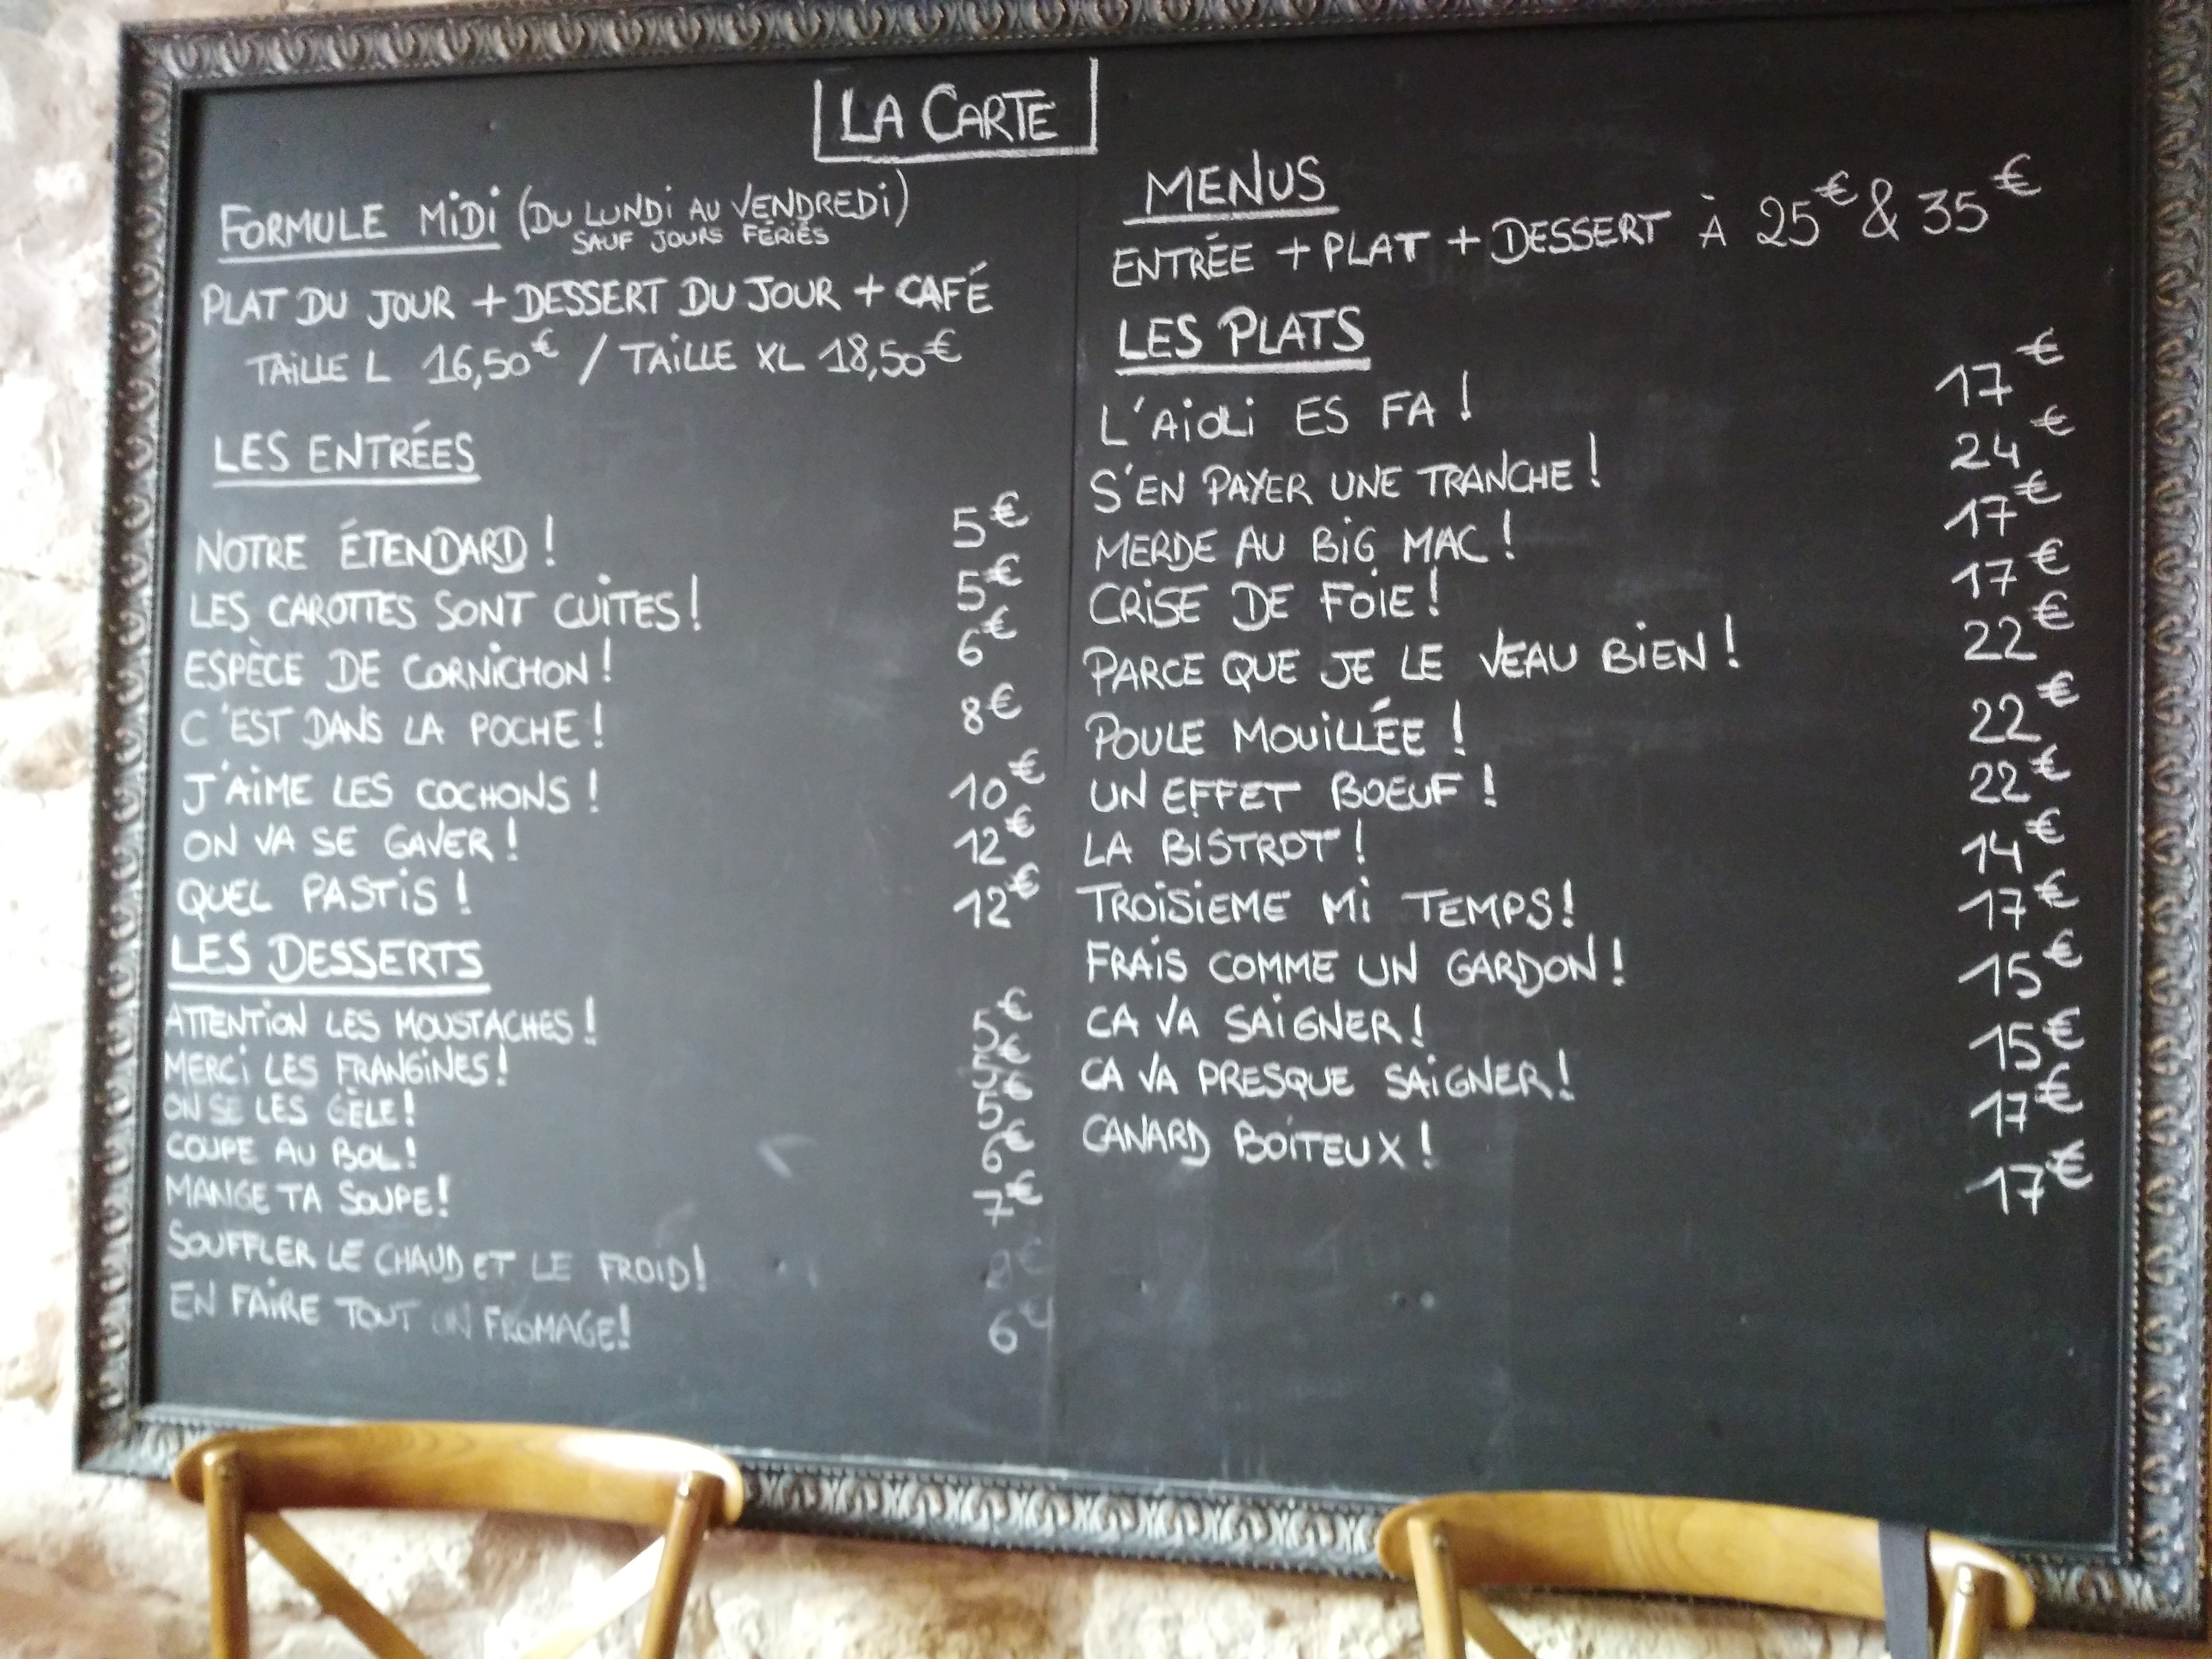 LA CARTE
FORMULE MIDI (DU LUNDI AU VENDREDI)
SAUF JOURS FÉRIÉS
PLAT DU JOUR + DESSERT DU JOUR + CAFÉ
TAILLE L 16,50€ / TAILLE XL 18,50€
LES ENTRÉES
NOTRE ÉTENDARD ! 5€
LES CAROTTES SONT CUITES ! 5€
ESPÈCE DE CORNICHON ! 6€
C'EST DANS LA POCHE ! 8€
J'AIME LES COCHONS ! 10€
ON VA SE GAVER ! 12€
QUEL PASTIS ! 12€
LES DESSERTS
ATTENTION LES MOUSTACHES ! 5€
MERCI LES FRANGINES ! 5€
ON SE LES GÈLE ! 5€
COUPE AU BOL ! 6€
MANGE TA SOUPE ! 7€
SOUFFLER LE CHAUD ET LE FROID !
EN FAIRE TOUT UN FROMAGE ! 6€
MENUS
ENTRÉE + PLAT + DESSERT À 25€ & 35€
LES PLATS
L'AIOLI ES FA ! 17€
S'EN PAYER UNE TRANCHE ! 24€
MERDE AU BIG MAC ! 17€
CRISE DE FOIE ! 17€
PARCE QUE JE LE VEAU BIEN ! 22€
POULE MOUILLÉE ! 22€
UN EFFET BOEUF ! 22€
LA BISTROT ! 14€
TROISIEME MI TEMPS ! 17€
FRAIS COMME UN GARDON ! 15€
CA VA SAIGNER ! 15€
CA VA PRESQUE SAIGNER ! 17€
CANARD BOITEUX ! 17€